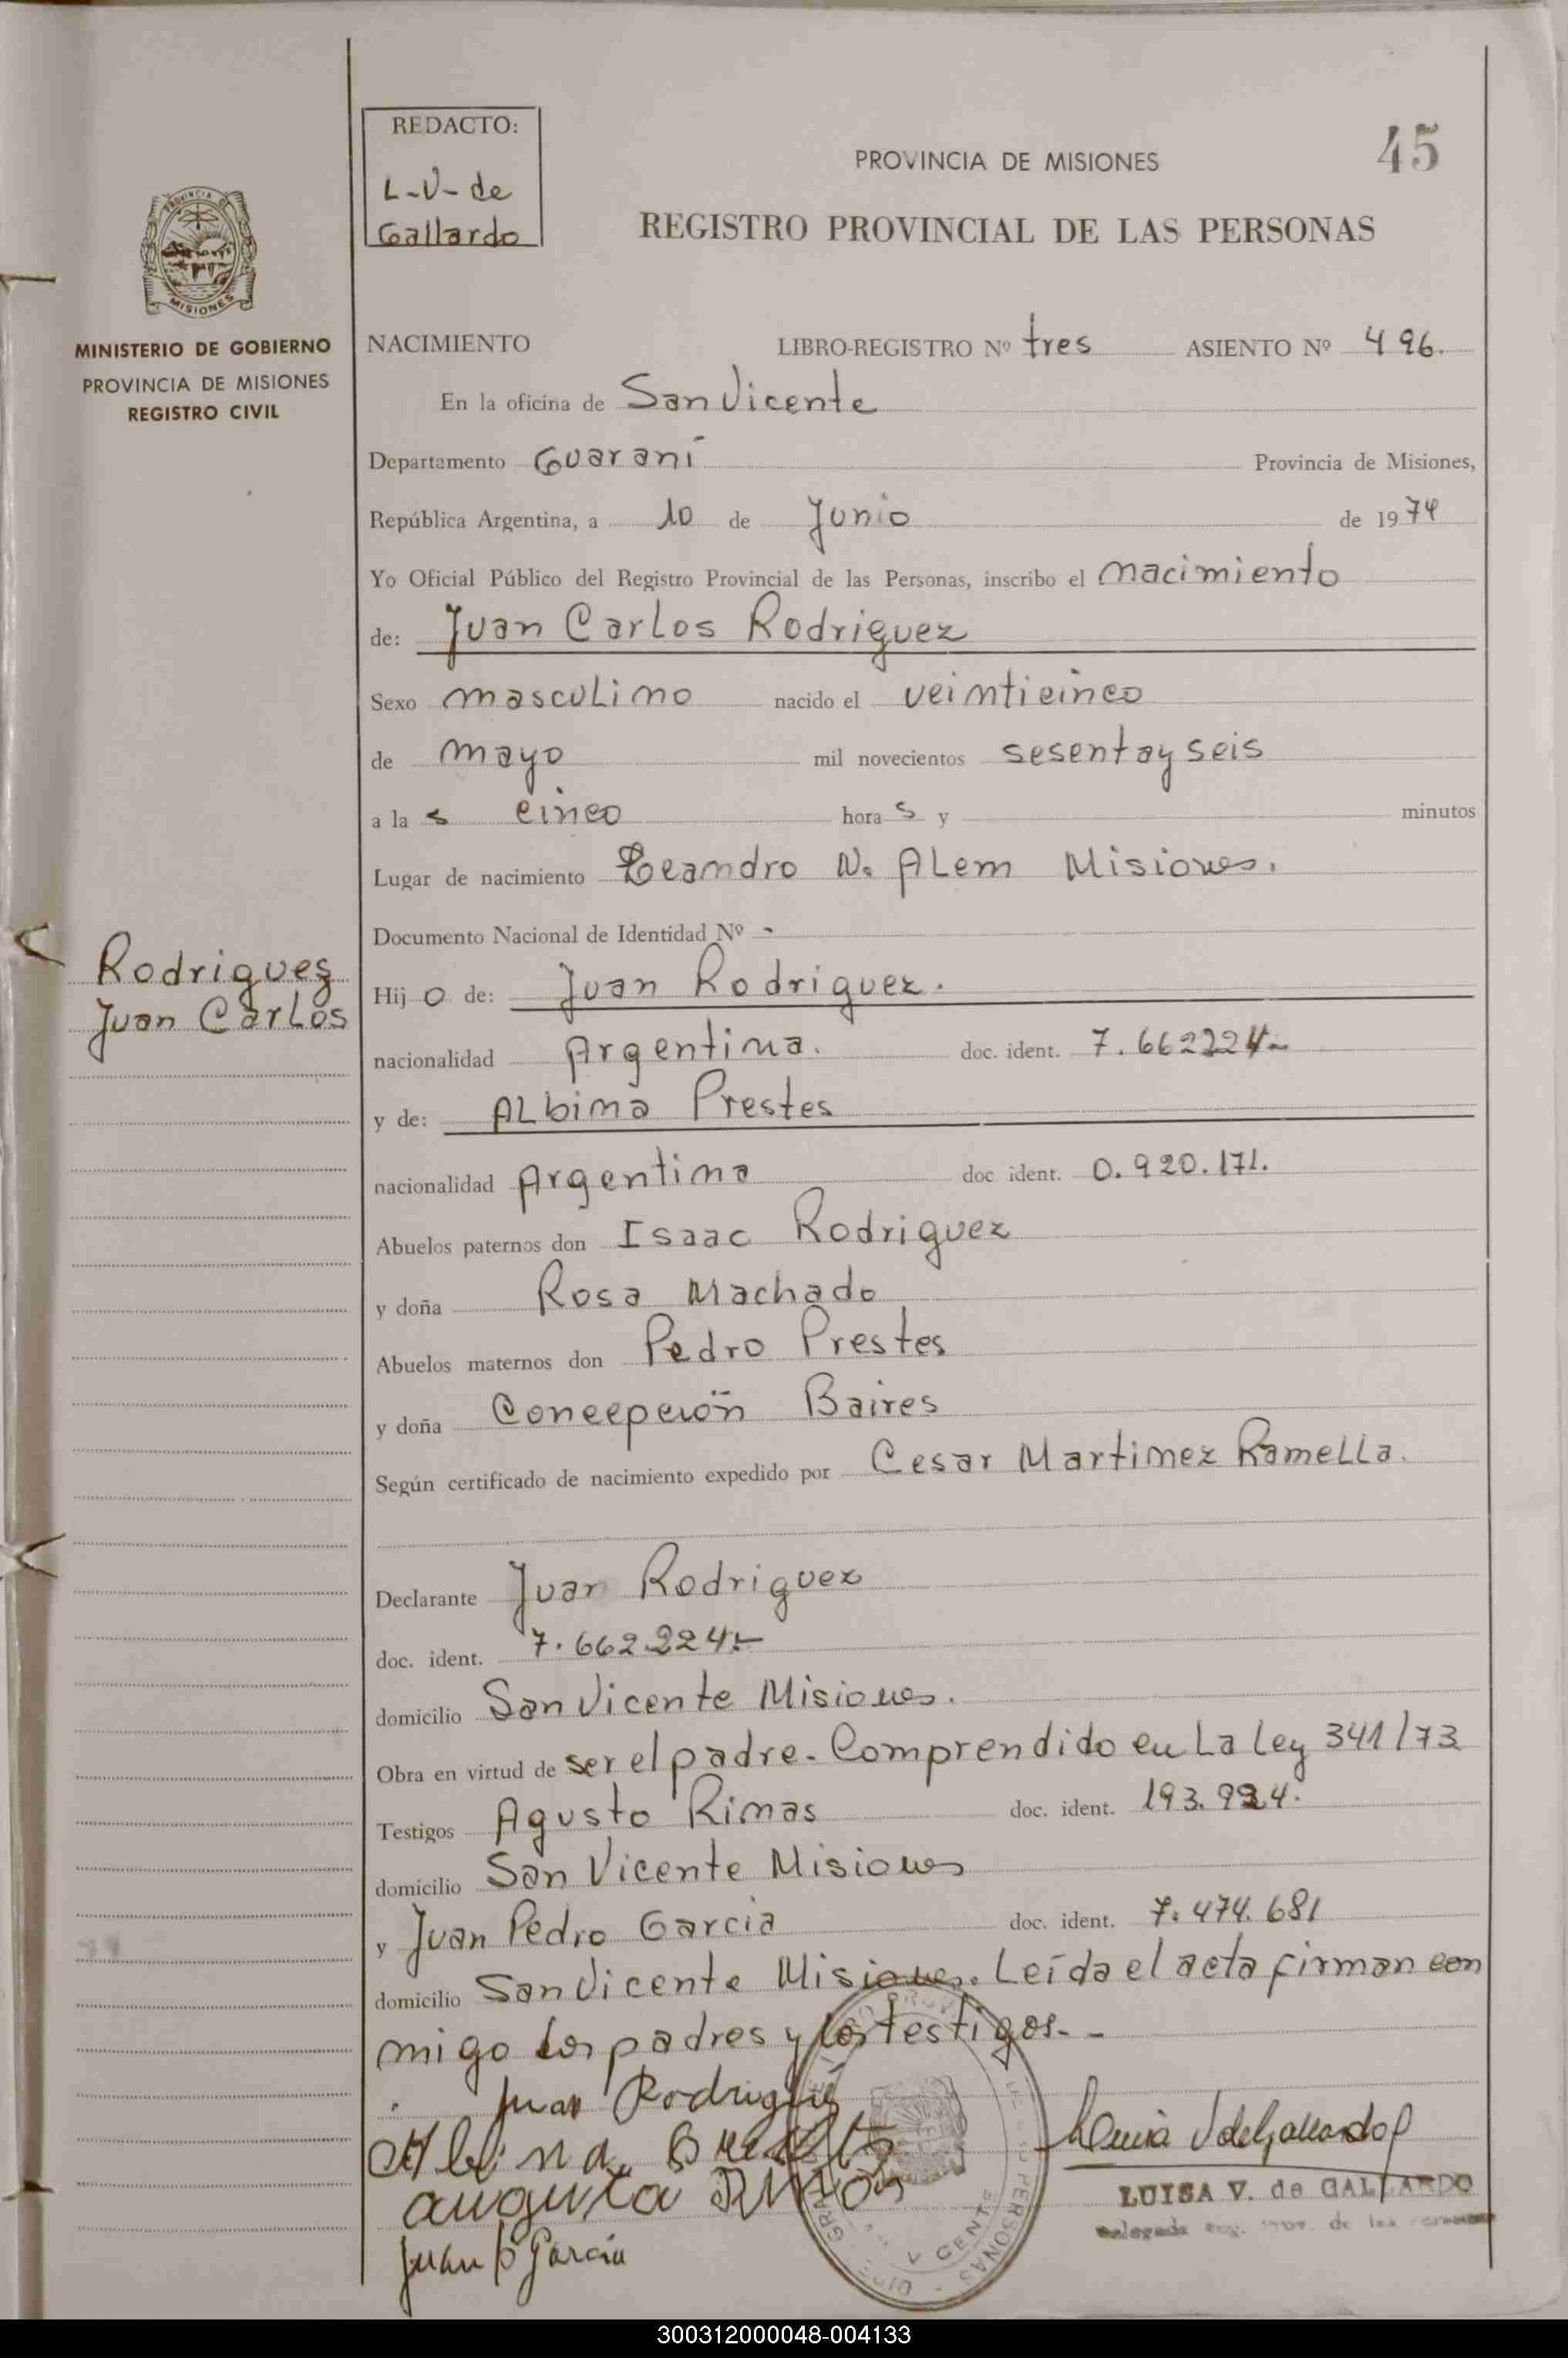 REDACTO:
L-V- de
Gallardo
PROVINCIA DE MISIONES
45
REGISTRO PROVINCIAL DE LAS PERSONAS
PROVINCIA DE
MISIONES
MINISTERIO DE GOBIERNO
PROVINCIA DE MISIONES
REGISTRO CIVIL
NACIMIENTO LIBRO-REGISTRO Nº tres ASIENTO Nº 496.
En la oficina de San Vicente
Departamento Guaraní Provincia de Misiones,
República Argentina, a 10 de Junio de 1974
Yo Oficial Público del Registro Provincial de las Personas, inscribo el nacimiento
de: Juan Carlos Rodriguez
Sexo masculino nacido el veinticinco
de mayo mil novecientos sesenta y seis
a la s cinco hora s y minutos
Lugar de nacimiento Leandro N. Alem Misiones.
Documento Nacional de Identidad Nº -
Rodriguez
Juan Carlos
Hij o de: Juan Rodriguez.
nacionalidad Argentina. doc. ident. 7.662224-
y de: Albina Prestes
nacionalidad Argentina doc ident. 0.920.171.
Abuelos paternos don Isaac Rodriguez
y doña Rosa Machado
Abuelos maternos don Pedro Prestes
y doña Concepción Baires
Según certificado de nacimiento expedido por Cesar Martinez Ramella.
Declarante Juan Rodriguez
doc. ident. 7.662.224.-
domicilio San Vicente Misiones.
Obra en virtud de ser el padre. Comprendido en La Ley 341/73
Testigos Agusto Rimas doc. ident. 193.994.
domicilio San Vicente Misiones
y Juan Pedro Garcia doc. ident. 7.474.681
domicilio San Vicente Misiones. Leída el acta firman con
migo los padres y los testigos.-
Juan Rodriguez
Albina
Juan P Garcia
LUISA V. de GALLARDO
300312000048-004133